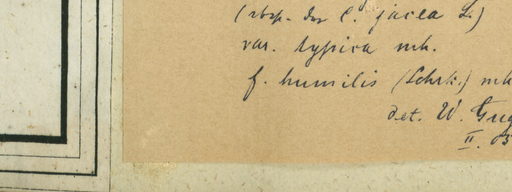 (sbsp. der C. jacea L.)
var. typica mh.
f. humilis (Schrk.) mh
det. W. Gug
II. 03